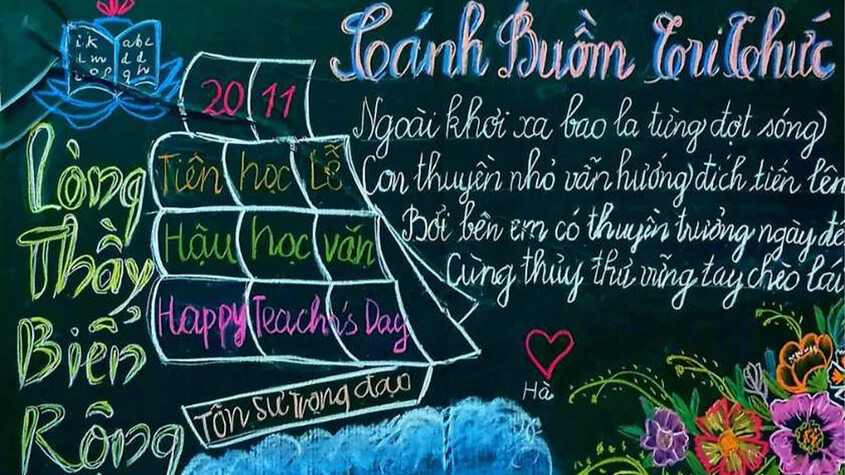 Cánh Buồm Tri Thức
Ngoài khơi xa bao la từng đợt sóng
Con thuyền nhỏ vẫn hướng đích tiến lên
Bởi bên em có thuyền trưởng ngày đê
Cùng thủy thủ vững tay chèo lái
i k abc
l m d d
n o p q h
20 11
Tiên học Lễ
Hậu học văn
Happy Teachr's Day
Tôn sư trọng đạo
Lòng
Thầy
Biển
Rộng
Hà